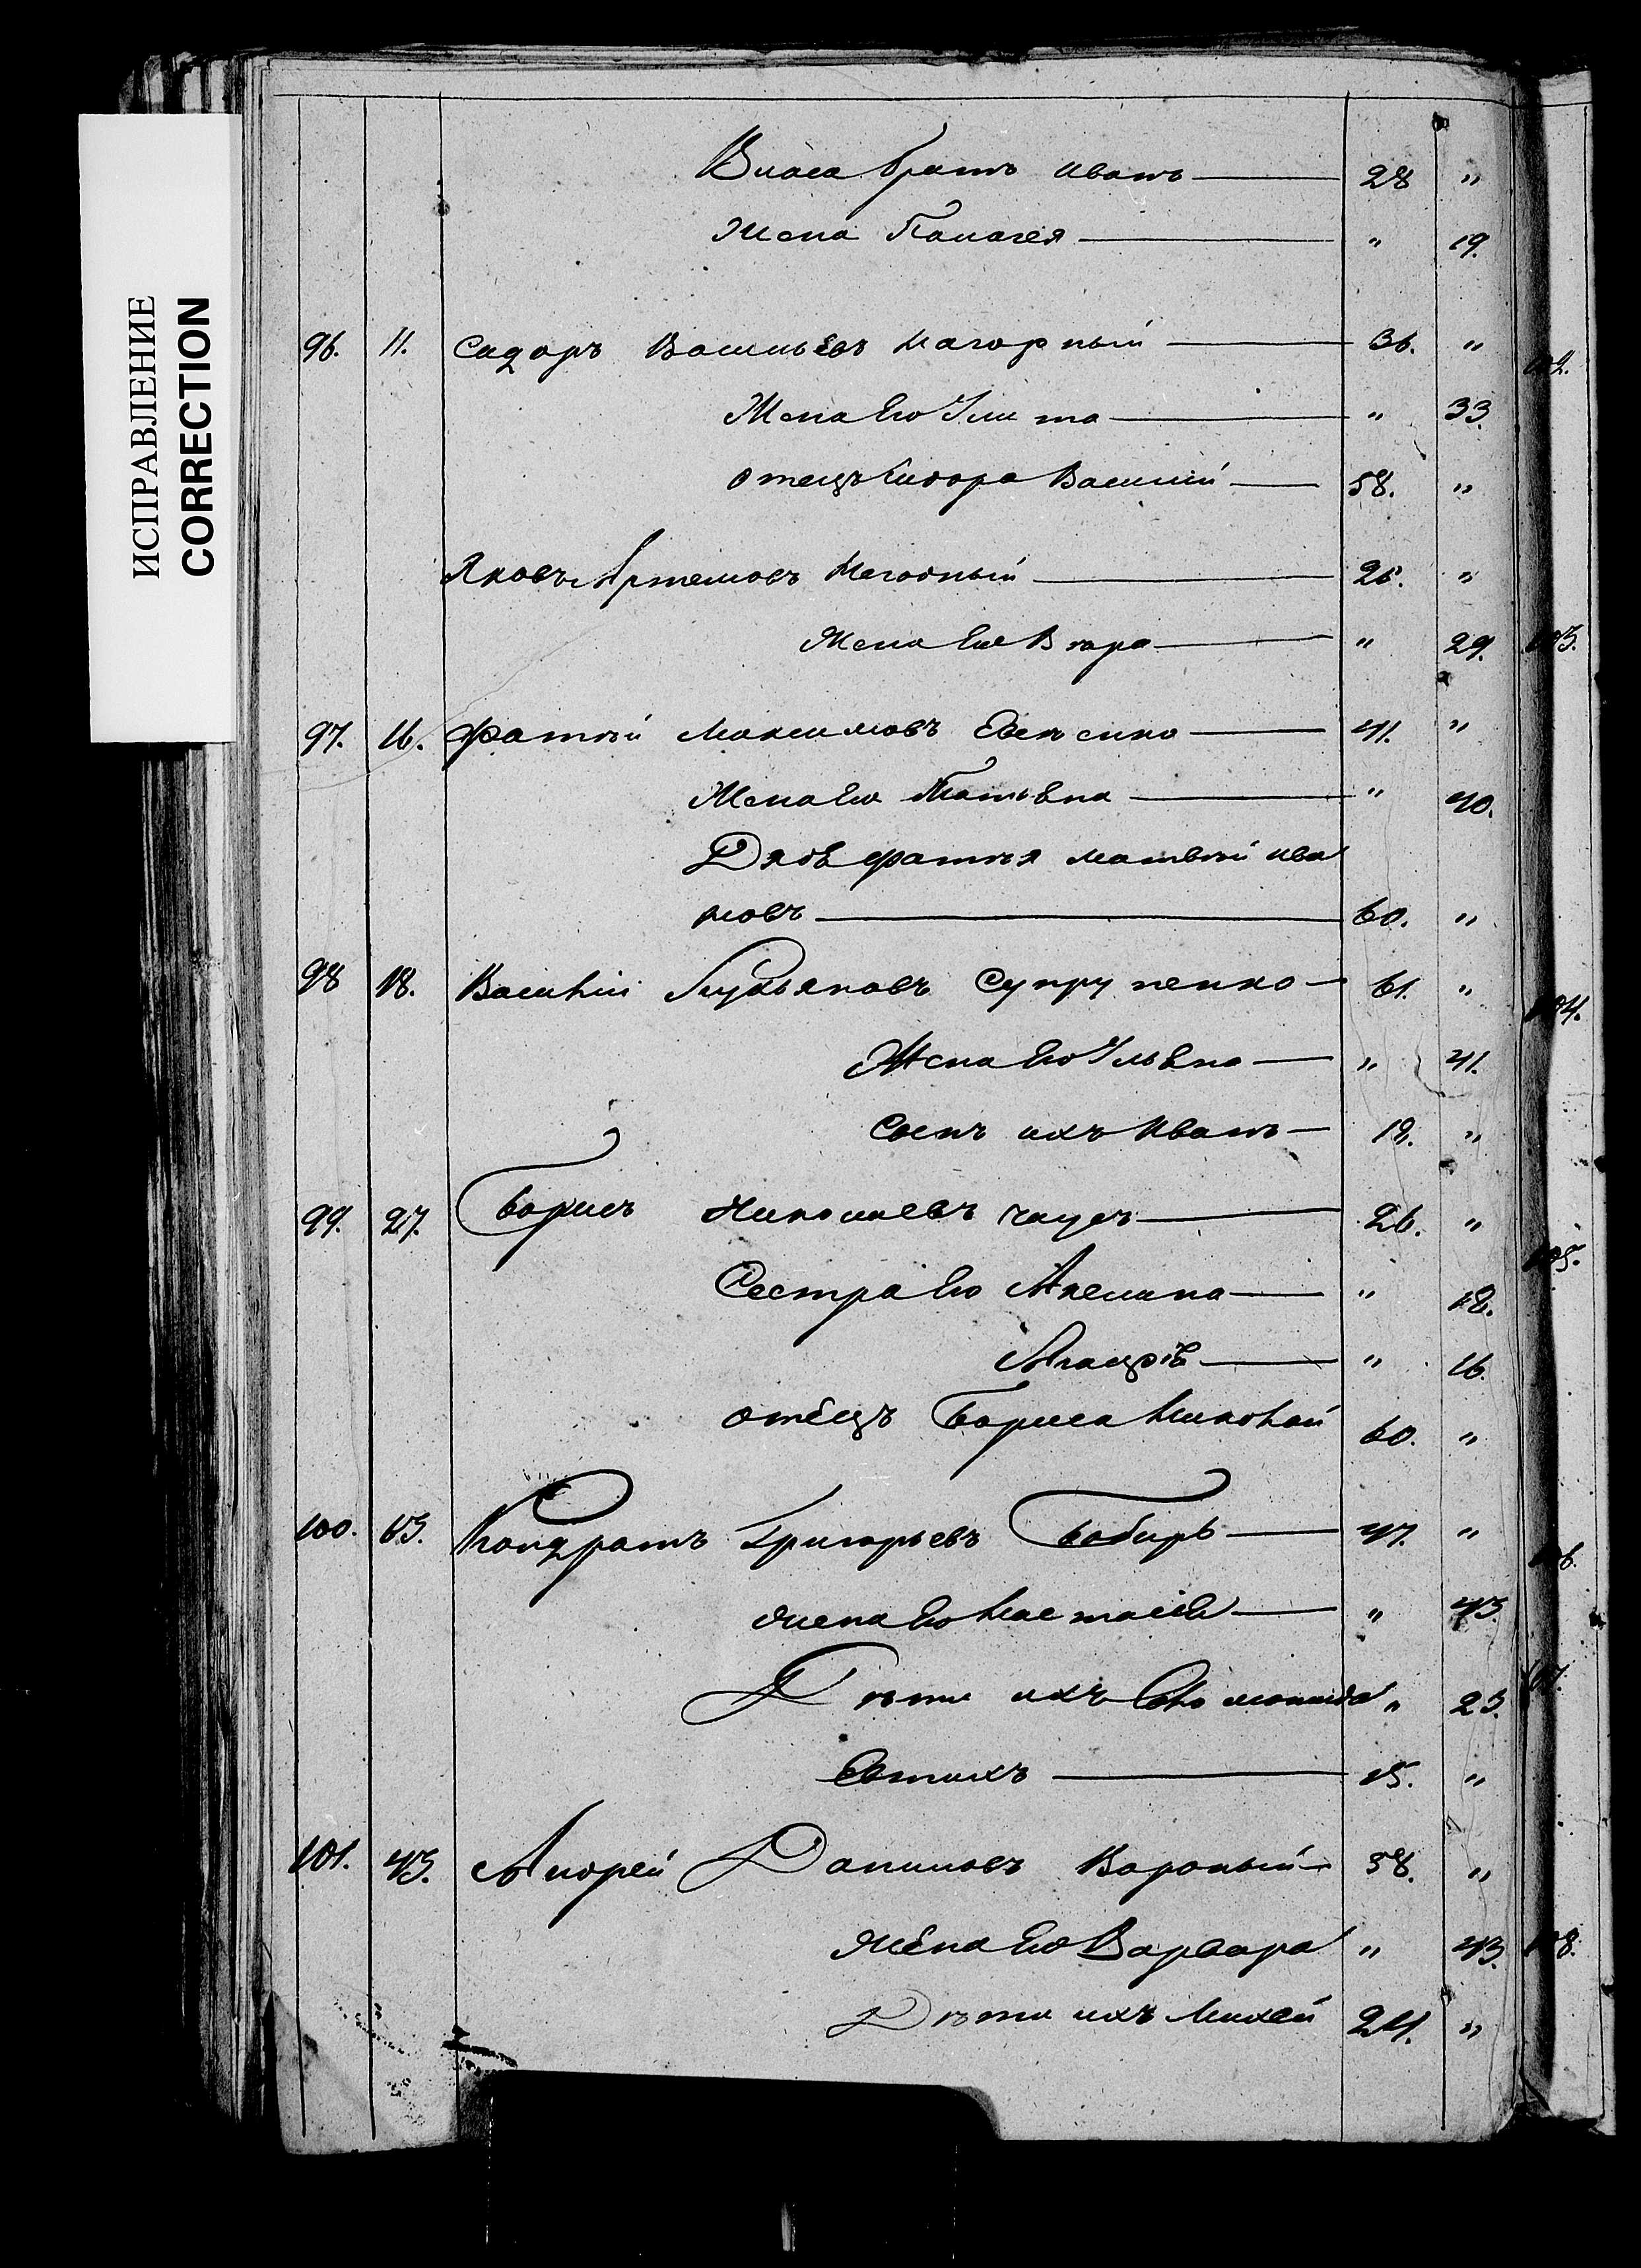 ИСПРАВЛЕНИЕ
CORRECTION
Власа братъ иванъ 28 "
Жена Палагея " 19.
96. 11. Сидоръ Васильевъ Нагорный 36. "
Жена Его Улита " 33.
отецъ Сидора Василий 58. "
Яковъ Артемовъ Нагорный 26. "
Жена Его Вѣра " 29.
97. 16. Фатѣй Максимовъ 41. "
Жена Его Татьяна " 40.
Дядя фатѣя матвѣй ива
новъ 60. "
98 18. Василий Лукьяновъ Супруненко 61. "
Жена Его Ульяна " 41.
Сынъ ихъ Иванъ 18. "
99. 27. Борисъ Николаевъ 26. "
Сестра Его Акелина " 18.
" 16.
отецъ Бориса Николай 60. "
100. 63. Кондратъ Григорьевъ Бобирь 47. "
жена Его Настасия " 43
Дѣти ихъ Соломонида " 23.
Евтихъ 15. "
101. 43. Андрей Даниловъ Вороный 58. "
жена Его Варвара " 43.
Дѣти ихъ Михей 24. "
102.
103.
104.
105.
106.
107.
108.